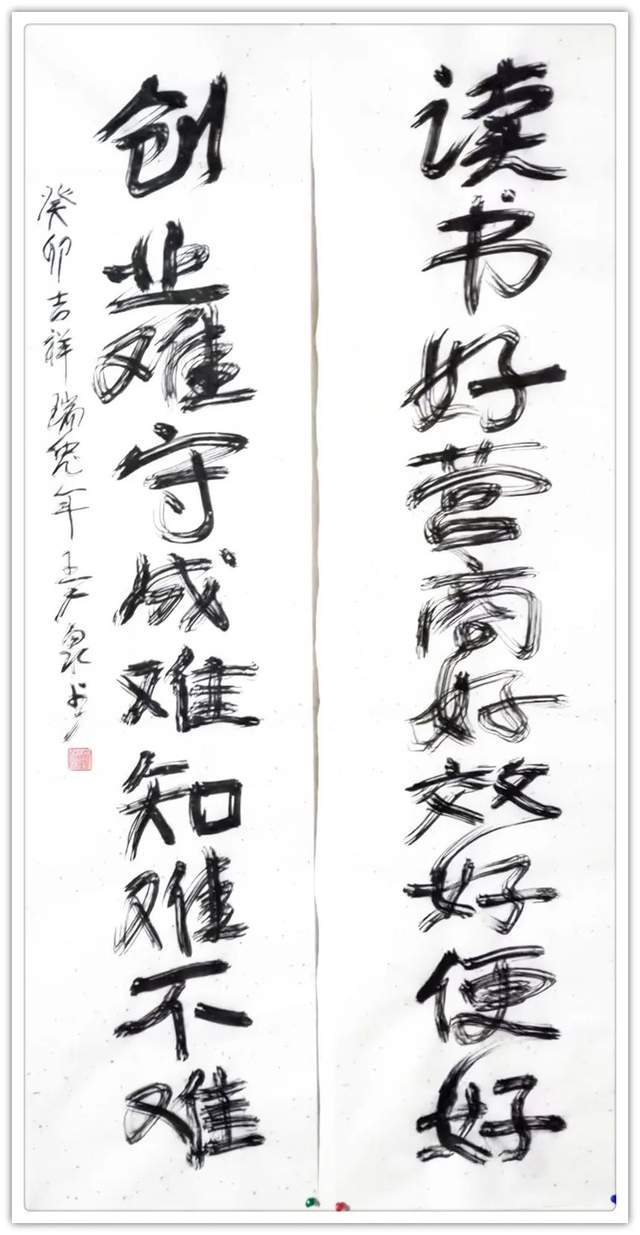 读书好营商好效好便好
创业难守成难知难不难
癸卯吉祥瑞兔年